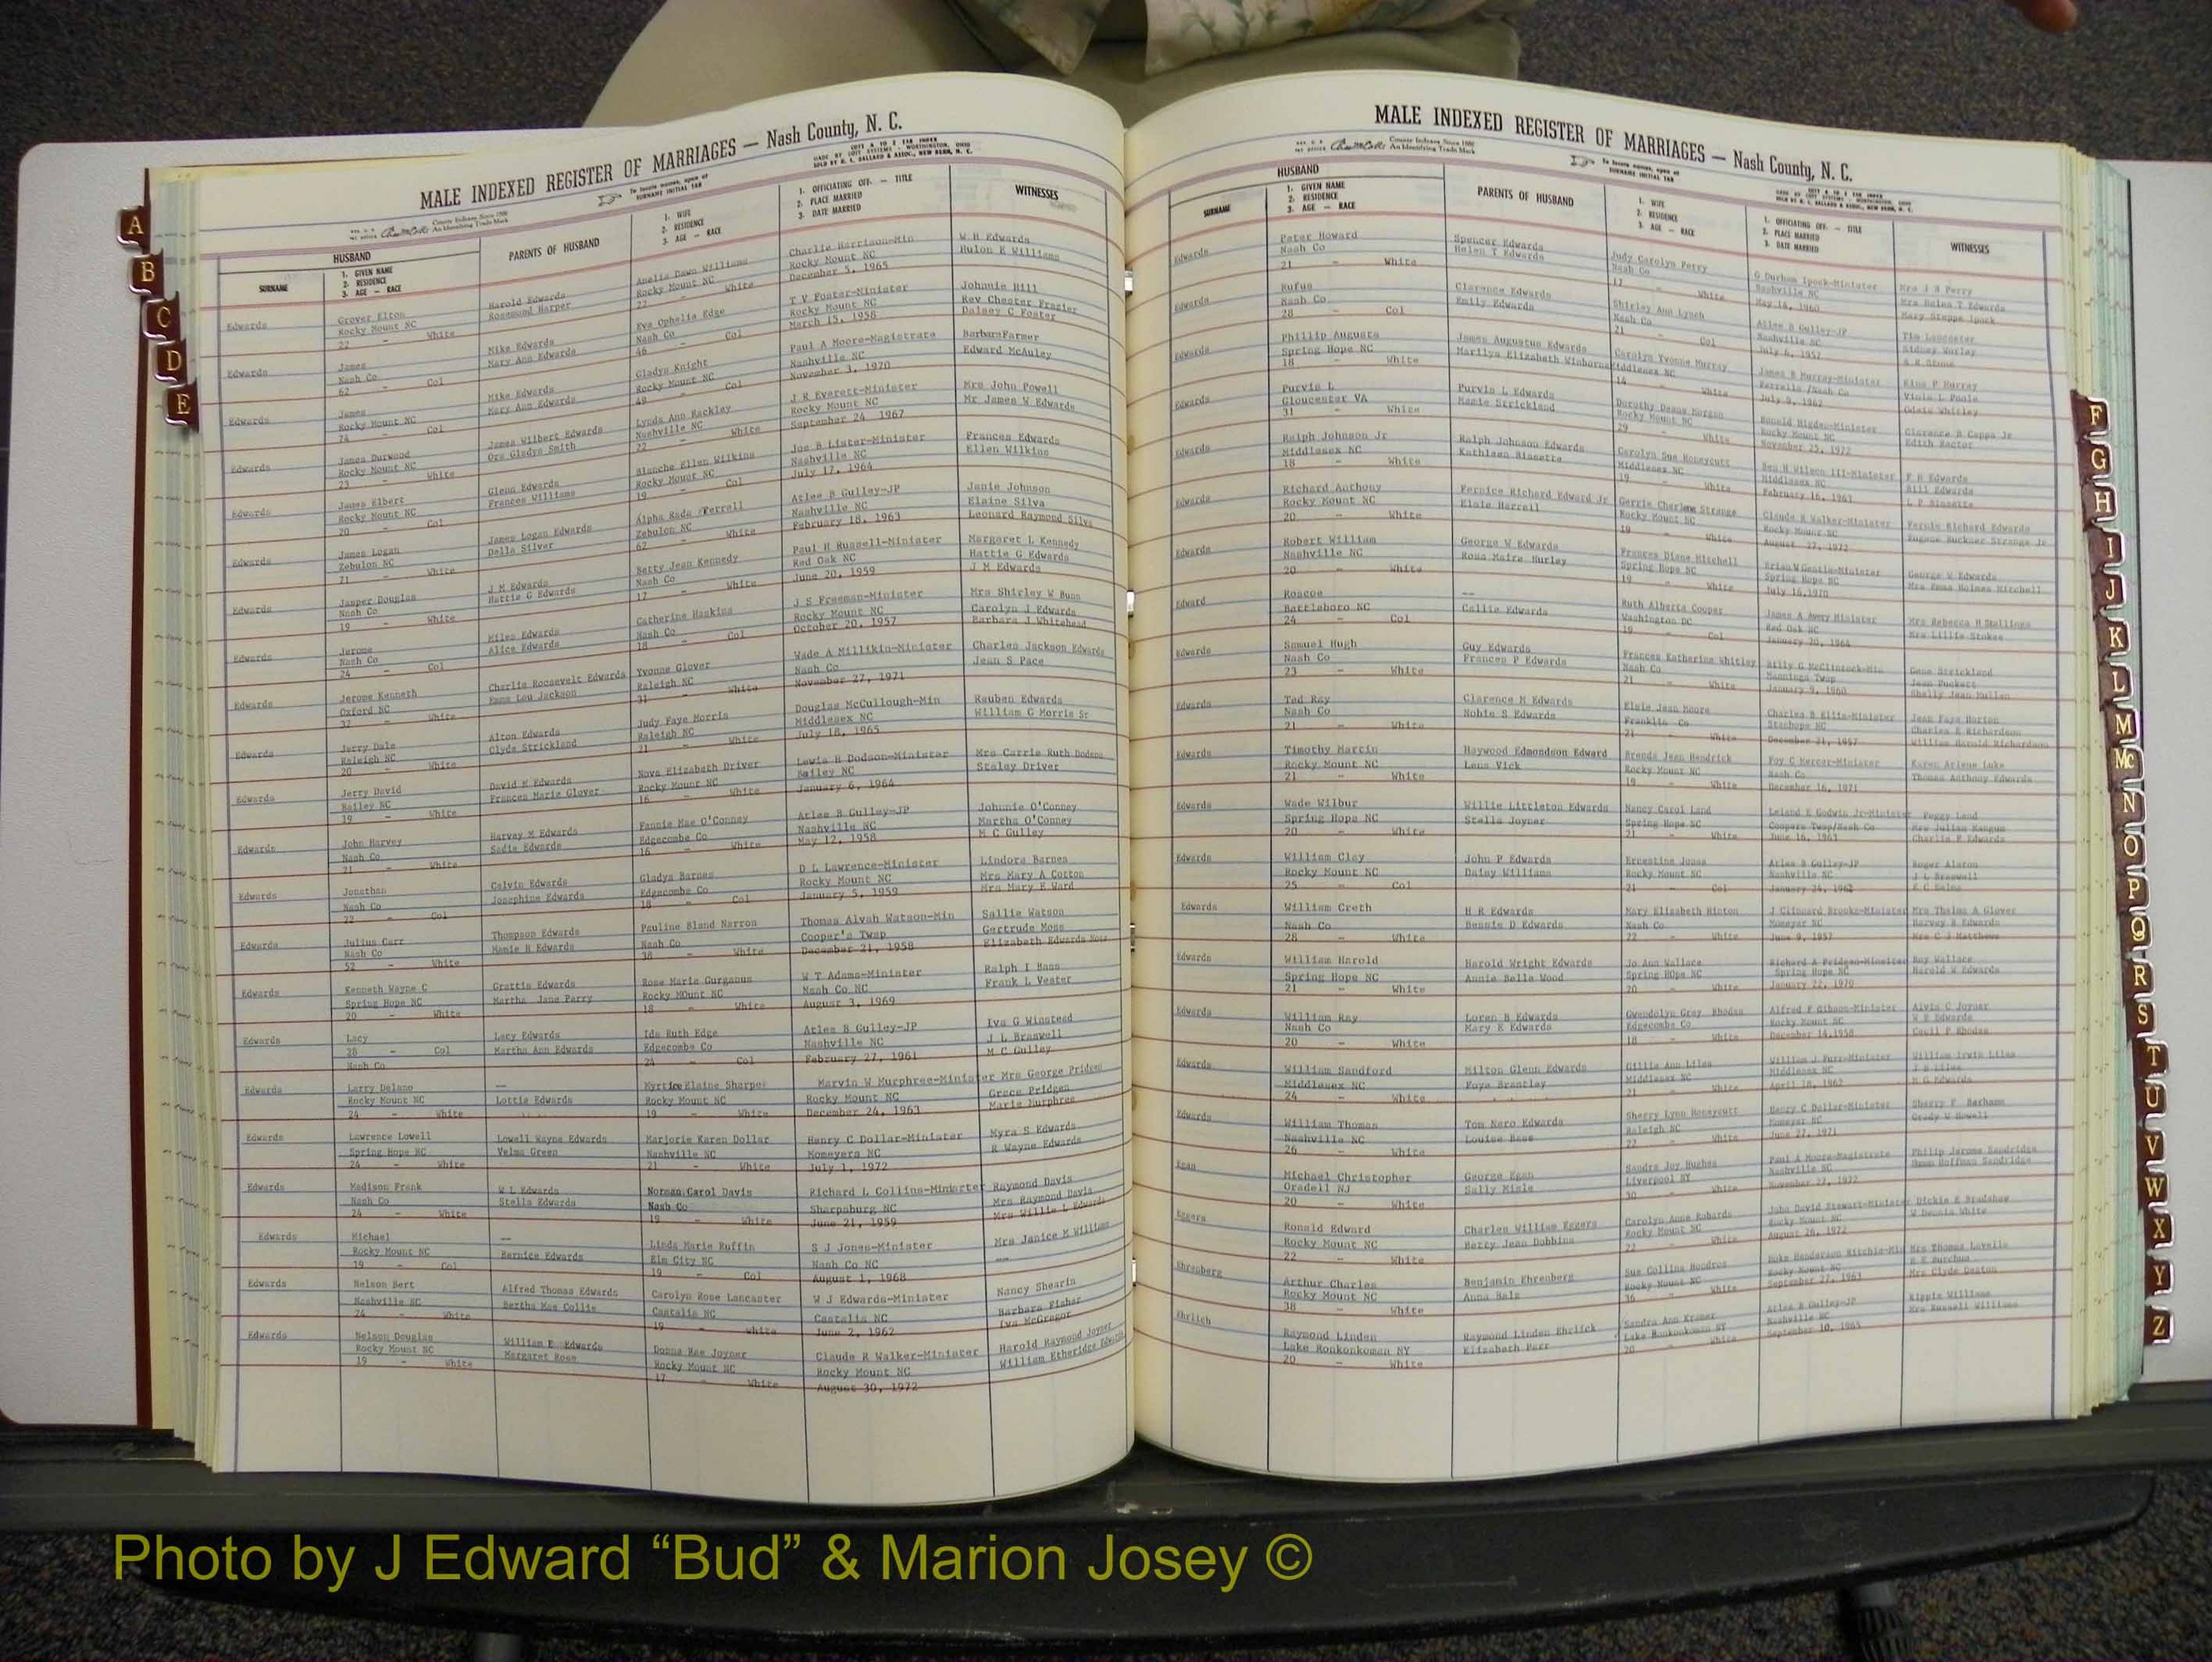 MALE INDEXED REGISTER OF MARRIAGES — Nash County, N. C.
HUSBAND
SURNAME
1. GIVEN NAME
2. RESIDENCE
3. AGE — RACE
PARENTS OF HUSBAND
1. WIFE
2. RESIDENCE
3. AGE — RACE
1. OFFICIATING OFF. — TITLE
2. PLACE MARRIED
3. DATE MARRIED
WITNESSES
Edwards
Grover Elton
Rocky Mount NC
22 - White
Harold Edwards
Rosemond Harper
Amelia Dawn Williams
Rocky Mount NC
22 - White
Charlie Harrison-Min
Rocky Mount NC
December 5, 1965
W H Edwards
Hulon E Williams
Edwards
James
Nash Co
62 - Col
Mike Edwards
Mary Ann Edwards
Eva Ophelia Edge
Nash Co
46 - Col
T V Foster-Minister
Rocky Mount NC
March 15, 1958
Johnnie Hill
Rev Chester Frazier
Daisey C Foster
Edwards
James
Rocky Mount NC
74 - Col
Mike Edwards
Mary Ann Edwards
Gladys Knight
Rocky Mount NC
49 - Col
Paul A Moore-Magistrate
Nashville NC
November 3, 1970
BarbaraFarmer
Edward McAuley
Edwards
James Durwood
Rocky Mount NC
23 - White
James Wilbert Edwards
Ora Gladys Smith
Lynda Ann Rackley
Nashville NC
22 - White
J R Everett-Minister
Rocky Mount NC
September 24 1967
Mrs John Powell
Mr James W Edwards
Edwards
James Elbert
Rocky Mount NC
20 - Col
Glenn Edwards
Frances Williams
Blanche Ellen Wilkins
Rocky Mount NC
19 - Col
Joe B Lister-Minister
Nashville NC
July 17, 1964
Frances Edwards
Ellen Wilkins
Edwards
James Logan
Zebulon NC
71 - White
James Logan Edwards
Della Silver
Zebulon NC
62 - White
Atlee B Gulley-JP
Nashville NC
February 18, 1963
Janie Johnson
Elaine Silva
Leonard Raymond Silva
Edwards
Jasper Douglas
Nash Co
19 - White
J M Edwards
Hattie G Edwards
Betty Jean Kennedy
Nash Co
17 - White
Paul H Russell-Minister
Red Oak NC
June 20, 1959
Margaret L Kennedy
Hattie G Edwards
J M Edwards
Edwards
Jerome
Nash Co
24 - Col
Miles Edwards
Alice Edwards
Catherine Haskins
Nash Co
18 - Col
J S Freeman-Minister
Rocky Mount NC
October 20, 1957
Mrs Shirley W Bunn
Carolyn J Edwards
Barbara J Whitehead
Edwards
Jerome Kenneth
Oxford NC
32 - White
Charlie Roosevelt Edwards
Emma Lou Jackson
Yvonne Glover
Raleigh NC
31 - White
Wade A Millikin-Minister
Nash Co
November 27, 1971
Charles Jackson Edwards
Jean S Pace
Edwards
Jerry Dale
Raleigh NC
20 - White
Alton Edwards
Clyde Strickland
Judy Faye Morris
Raleigh NC
21 - White
Douglas McCullough-Min
Middlesex NC
July 18, 1965
Reuben Edwards
William G Morris Sr
Edwards
Jerry David
Bailey NC
19 - White
David M Edwards
Frances Marie Glover
Nova Elizabeth Driver
Rocky Mount NC
16 - White
Lewis H Dodson-Minister
Bailey NC
January 6, 1964
Mrs Carrie Ruth Dodson
Staley Driver
Edwards
John Harvey
Nash Co
21 - White
Harvey M Edwards
Sadie Edwards
Fannie Mae O'Conney
Edgecombe Co
16 - White
Atlee B Gulley-JP
Nashville NC
May 12, 1958
Johnnie O'Conney
Martha O'Conney
M C Gulley
Edwards
Jonathan
Nash Co
22 - Col
Calvin Edwards
Josephine Edwards
Gladys Barnes
Edgecombe Co
18 - Col
D L Lawrence-Minister
Rocky Mount NC
January 5, 1959
Lindora Barnes
Mrs Mary A Cotton
Mrs Mary E Ward
Edwards
Julius Carr
Nash Co
52 - White
Thompson Edwards
Mamie H Edwards
Pauline Bland Narron
Nash Co
38 - White
Thomas Alvah Watson-Min
Cooper's Twsp
December 21, 1958
Sallie Watson
Gertrude Moss
Elizabeth Edwards Moss
Edwards
Kenneth Wayne C
Spring Hope NC
20 - White
Grattis Edwards
Martha Jane Perry
Rose Marie Gurganus
Rocky MOunt NC
18 - White
W T Adams-Minister
Nash Co NC
August 3, 1969
Ralph I Bass
Frank L Vester
Edwards
Lacy
28 - Col
Nash Co
Lacy Edwards
Martha Ann Edwards
Ida Ruth Edge
Edgecombe Co
24 - Col
Atlee B Gulley-JP
Nashville NC
February 27, 1961
Iva G Winstead
J L Braswell
M C Gulley
Edwards
Larry Delano
Rocky Mount NC
24 - White
—
Lottie Edwards
Myrtice Elaine Sharpe
Rocky Mount NC
19 - White
Marvin W Murphree-Minister
Rocky Mount NC
December 24, 1963
Mrs George Pridgen
Grace Pridgen
Marie Murphree
Edwards
Lawrence Lowell
Spring Hope NC
24 - White
Lowell Wayne Edwards
Velma Green
Marjorie Karen Dollar
Nashville NC
21 - White
Henry C Dollar-Minister
Momeyers NC
July 1, 1972
Myra S Edwards
R Wayne Edwards
Edwards
Madison Frank
Nash Co
24 - White
W L Edwards
Stella Edwards
Norman Carol Davis
Nash Co
19 - White
Richard L Collins-Minister
Sharpsburg NC
June 21, 1959
Raymond Davis
Mrs Raymond Davis
Mrs Willie L Edwards
Edwards
Michael
Rocky Mount NC
19 - Col
—
Bernice Edwards
Linda Marie Ruffin
Elm City NC
19 - Col
S J Jones-Minister
Nash Co NC
August 1, 1968
Mrs Janice M Williams
—
Edwards
Nelson Bert
Nashville NC
24 - White
Alfred Thomas Edwards
Bertha Mae Collie
Carolyn Rose Lancaster
Castalia NC
19 - white
W J Edwards-Minister
Castalia NC
June 2, 1962
Nancy Shearin
Barbara Fisher
Iva McGregor
Edwards
Nelson Douglas
Rocky Mount NC
19 - White
William E Edwards
Margaret Rose
Donna Rae Joyner
Rocky Mount NC
17 - White
Claude R Walker-Minister
Rocky Mount NC
August 30, 1972
Harold Raymond Joyner
William Etheridge Edwards
A
B
C
D
E
MALE INDEXED REGISTER OF MARRIAGES — Nash County, N. C.
HUSBAND
SURNAME
1. GIVEN NAME
2. RESIDENCE
3. AGE — RACE
PARENTS OF HUSBAND
1. WIFE
2. RESIDENCE
3. AGE — RACE
1. OFFICIATING OFF. — TITLE
2. PLACE MARRIED
3. DATE MARRIED
WITNESSES
Edwards
Peter Howard
Nash Co
21 - White
Spencer Edwards
Helen T Edwards
Judy Carolyn Perry
Nash Co
17 - White
G Durham Ipock-Minister
Nashville NC
May 14, 1960
Mrs J R Perry
Mrs Helen T Edwards
Mary Steppe Ipock
Edwards
Rufus
Nash Co
28 - Col
Clarence Edwards
Emily Edwards
Shirley Ann Lynch
Nash Co
21 - Col
Atlee B Gulley-JP
Nashville NC
July 6, 1957
Tim Lancaster
Sidney Worley
Edwards
Phillip Augusta
Spring Hope NC
18 - White
James Augustus Edwards
Marilyn Elizabeth Winborne
Carolyn Yvonne Murray
Middlesex NC
14 - White
James B Murray-Minister
Ferrells /Nash Co
July 9, 1962
King P Murray
Viola L Poole
Odell Whitley
Edwards
Purvis L
Gloucester VA
31 - White
Purvis L Edwards
Mamie Strickland
Dorothy Deans Morgan
Rocky Mount NC
29 - White
Ronald Higdon-Minister
Rocky Mount NC
November 25, 1972
Clarence B Capps Jr
Edith Rector
Edwards
Ralph Johnson Jr
Middlesex NC
18 - White
Ralph Johnson Edwards
Kathleen Bissette
Carolyn Sue Honeycutt
Middlesex NC
19 - White
Ben H Wilson III-Minister
Middlesex NC
February 16, 1963
F H Edwards
Bill Edwards
L P Bissette
Edwards
Richard Anthony
Rocky Mount NC
20 - White
Fernice Richard Edward Jr
Elsie Harrell
Gerrie Charlene Strange
Rocky Mount NC
19 - White
Claude R Walker-Minister
Rocky Mount NC
August 27, 1972
Fernie Richard Edwards
Eugene Buckner Strange Jr
Edwards
Robert William
Nashville NC
20 - White
George W Edwards
Rosa Maire Hurley
Frances Diane Mitchell
Spring Hope NC
19 - White
Brian W Gentle-Minister
Spring Hope NC
July 16,1970
George W Edwards
Mrs Emma Holmes Mitchell
Edward
Roscoe
Battleboro NC
24 - Col
—
Callie Edwards
Ruth Alberta Cooper
Washington DC
19 - Col
James A Avery Minister
Red Oak NC
January 20, 1964
Mrs Rebecca H Stallings
Mrs Lillie Stokes
Edwards
Samuel Hugh
Nash Co
23 - White
Guy Edwards
Frances P Edwards
Frances Katherine Whitley
Nash Co
21 - White
Billy G McClintock-Min
Mannings Twsp
January 9, 1960
Gene Strickland
Jean Puckett
Shelly Jean Mullen
Edwards
Ted Ray
Nash Co
21 - White
Clarence M Edwards
Nobie S Edwards
Elsie Jean Moore
Franklin Co
21 - White
Charles B Ellis-Minister
Stanhope NC
December 21, 1957
Jean Faye Horton
Charles E Richardson
William Harold Richardson
Edwards
Timothy Martin
Rocky Mount NC
21 - White
Haywood Edmondson Edward
Lena Vick
Brenda Jean Hendrick
Rocky Mount NC
19 - White
Foy C Mercer-Minister
Nash Co
December 16, 1971
Karen Arlene Luke
Thomas Anthony Edwards
Edwards
Wade Wilbur
Spring Hope NC
20 - White
Willie Littleton Edwards
Stella Joyner
Nancy Carol Land
Spring Hope NC
21 - White
Leland E Godwin Jr-Minister
Coopers Twsp/Nash Co
June 16, 1963
Peggy Land
Mrs Julian Mangum
Charlie F Edwards
Edwards
William Clay
Rocky Mount NC
25 - Col
John P Edwards
Daisy Williams
Ernestine Jones
Rocky Mount NC
21 - Col
Atlee B Gulley-JP
Nashville NC
January 24, 1962
Roger Alston
J L Braswell
Edwards
William Creth
Nash Co
28 - White
H R Edwards
Bennie D Edwards
Mary Elizabeth Hinton
Nash Co
22 - White
J Clinnard Brooks-Minister
Momeyer NC
June 9, 1957
Mrs Thelma A Glover
Harvey R Edwards
Mrs C J Matthews
Edwards
William Harold
Spring Hope NC
21 - White
Harold Wright Edwards
Annie Belle Wood
Jo Ann Wallace
Spring HOpe NC
20 - White
Richard A Pridgen-Minsiter
Spring Hope NC
January 22, 1970
Roy Wallace
Harold W Edwards
Edwards
William Ray
Nash Co
20 - White
Loren B Edwards
Mary E Edwards
Gwendolyn Gray Rhodes
Edgecombe Co
18 - White
Alfred F Gibson-Minister
Rocky Mount NC
December 14,1958
Alvis C Joyner
W E Edwards
Cecil P Rhodes
Edwards
William Sandford
Middlesex NC
24 - White
Milton Glenn Edwards
Faye Brantley
Gillie Ann Liles
Middlesex NC
21 - White
William J Furr-Minister
Middlesex NC
April 18, 1962
William Irwin Liles
J B Liles
M G Edwards
Edwards
William Thomas
Nashville NC
26 - White
Tom Nero Edwards
Louise Bass
Sherry Lynn Honeycutt
Raleigh NC
22 - White
Henry C Dollar-Minister
Momeyer NC
June 27, 1971
Sherry F Barham
Grady W Howell
Egan
Michael Christopher
Oradell NJ
20 - White
George Egan
Sally Misle
Sandra Joy Hughes
Liverpool NY
30 - White
Paul A Moore-Magistrate
Nashville NC
November 27, 1972
Philip Jerome Sandridge
Eggers
Ronald Edward
Rocky Mount NC
22 - White
Charles William Eggers
Betty Jean Dobbins
Carolyn Anne Robards
Rocky Mount NC
22 - White
John David Stewart-Minister
Rocky Mount NC
August 26, 1972
Dickie E Bradshaw
W Dennis White
Ehrenberg
Arthur Charles
Rocky Mount NC
38 - White
Benjamin Ehrenberg
Anna Balz
Sue Collins Hondros
Rocky Mount NC
36 - White
Rocky Mount NC
September 27, 1963
Mrs Clyde Denton
Ehrlich
Raymond Linden
Lake Ronkonkoman NY
20 - White
Raymond Linden Ehrlick
Elizabeth Parr
Sandra Ann Kramer
Lake Ronkonkoman NY
20 - White
Atlee B Gulley-JP
Nashville NC
September 10, 1965
Kippie Williams
Mrs Russell Williams
F
G
H
I
J
K
L
M
Mc
N
O
P
Q
R
S
T
U
V
W
X
Y
Z
Photo by J Edward “Bud” & Marion Josey ©